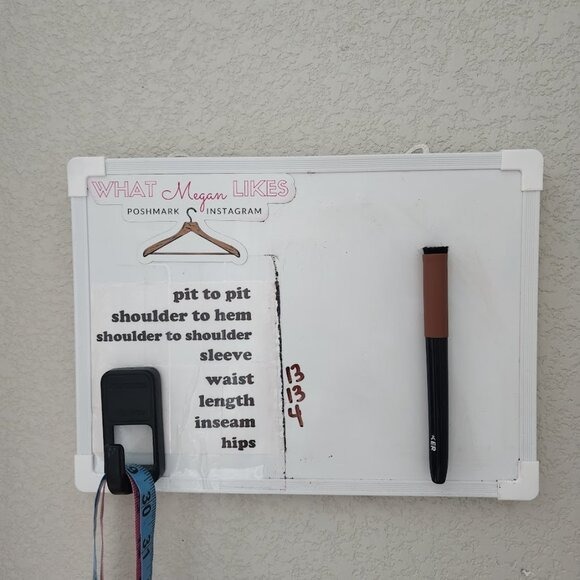 WHAT Megan LIKES
POSHMARK INSTAGRAM
pit to pit
shoulder to hem
shoulder to shoulder
sleeve
waist 13
length 13
inseam 4
hips
30
31
KER